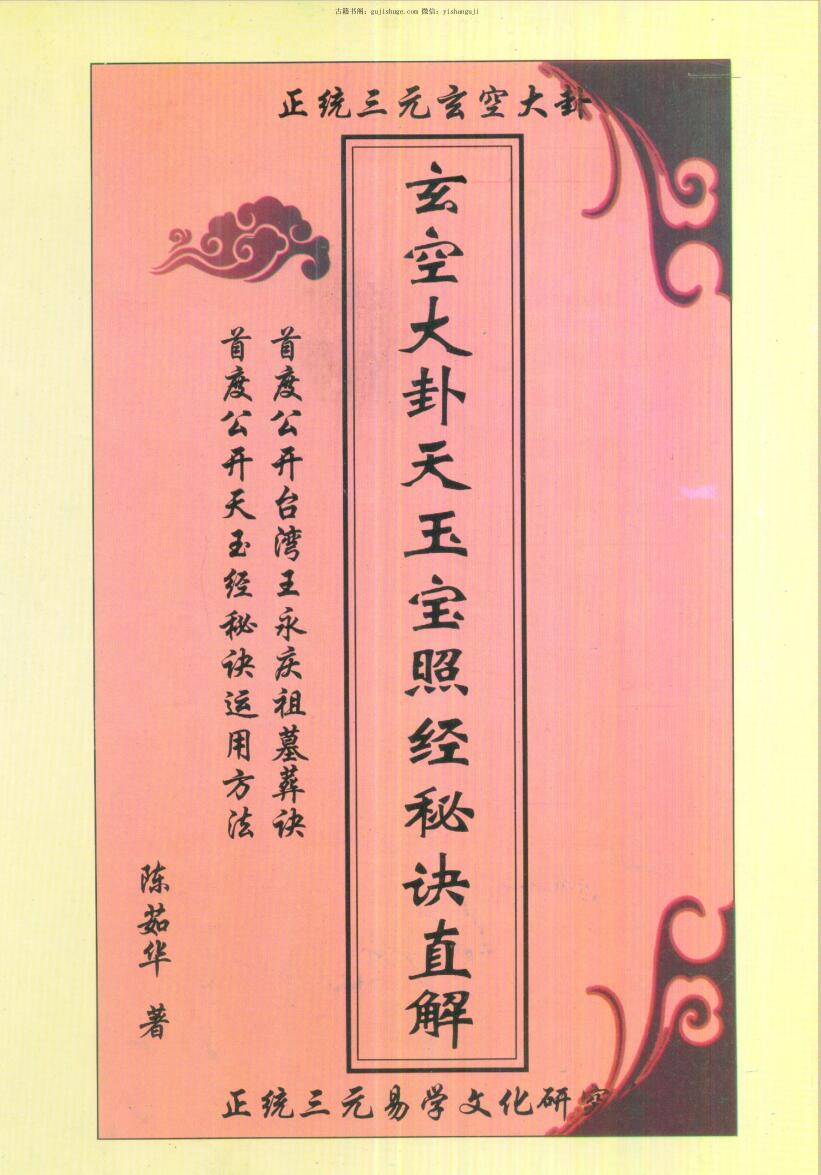 古籍书阁：gujishuge.com 微信：yishanguji
正统三元玄空大卦
玄空大卦天玉宝照经秘诀直解
首度公开台湾王永庆祖墓葬诀
首度公开天玉经秘诀运用方法
陈茹华 著
正统三元易学文化研究